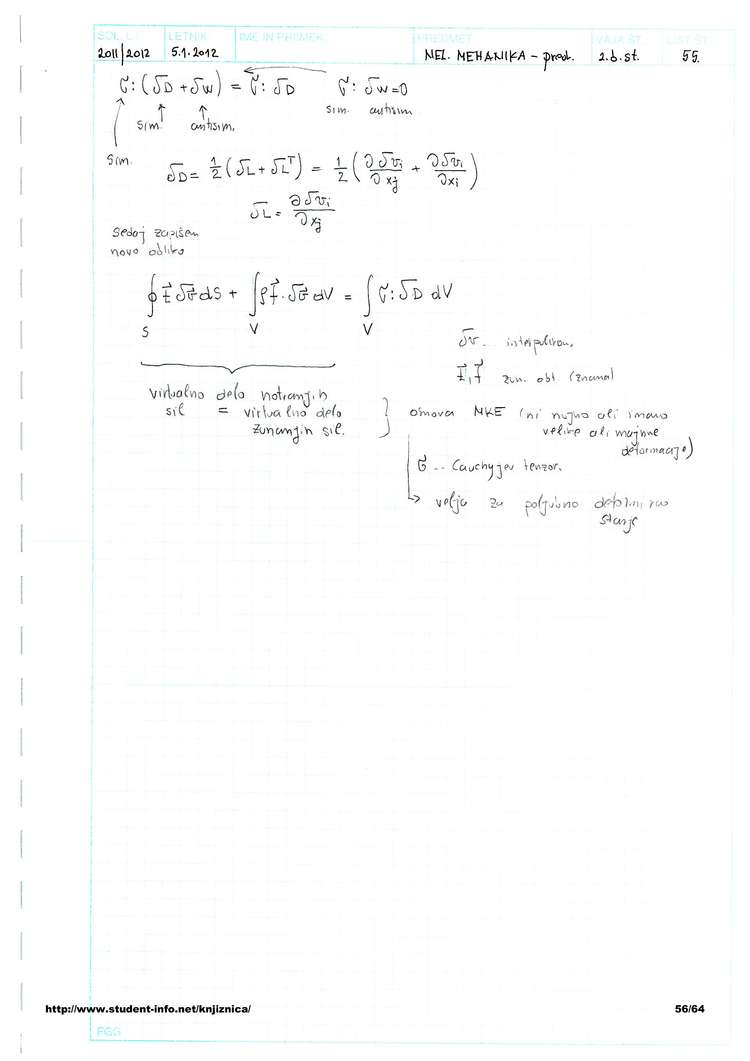 ŠOL. L. LETNIK IME IN PRIIMEK PREDMET VAJA ŠT. LIST ŠT.
2011/2012 5.1.2012 NEL. MEHANIKA - pred. 2.b.st. 55.
σ : (δD + δW) = σ : δD σ : δW = 0
sim. antisim.
sim. antisim.
sim.
δD = 1/2 (δL + δLᵀ) = 1/2 (∂δvᵢ/∂xⱼ + ∂δvⱼ/∂xᵢ)
δL = ∂δvᵢ/∂xⱼ
sedaj zapišem
novo obliko
∮ t⃗ δv⃗ dS + ∫ ρf⃗ · δv⃗ dV = ∫ σ : δD dV
S V V
δv.. interpoliram.
t⃗, f⃗ zun. obt. (znana)
virtualno delo notranjih
sil = virtualno delo
zunanjih sil.
osnova MKE (ni nujno ali imamo
velike ali majhne
deformacije)
σ .. Cauchyjev tenzor.
↳ velja za poljubno
stanje
http://www.student-info.net/knjiznica/ 56/64
FGG